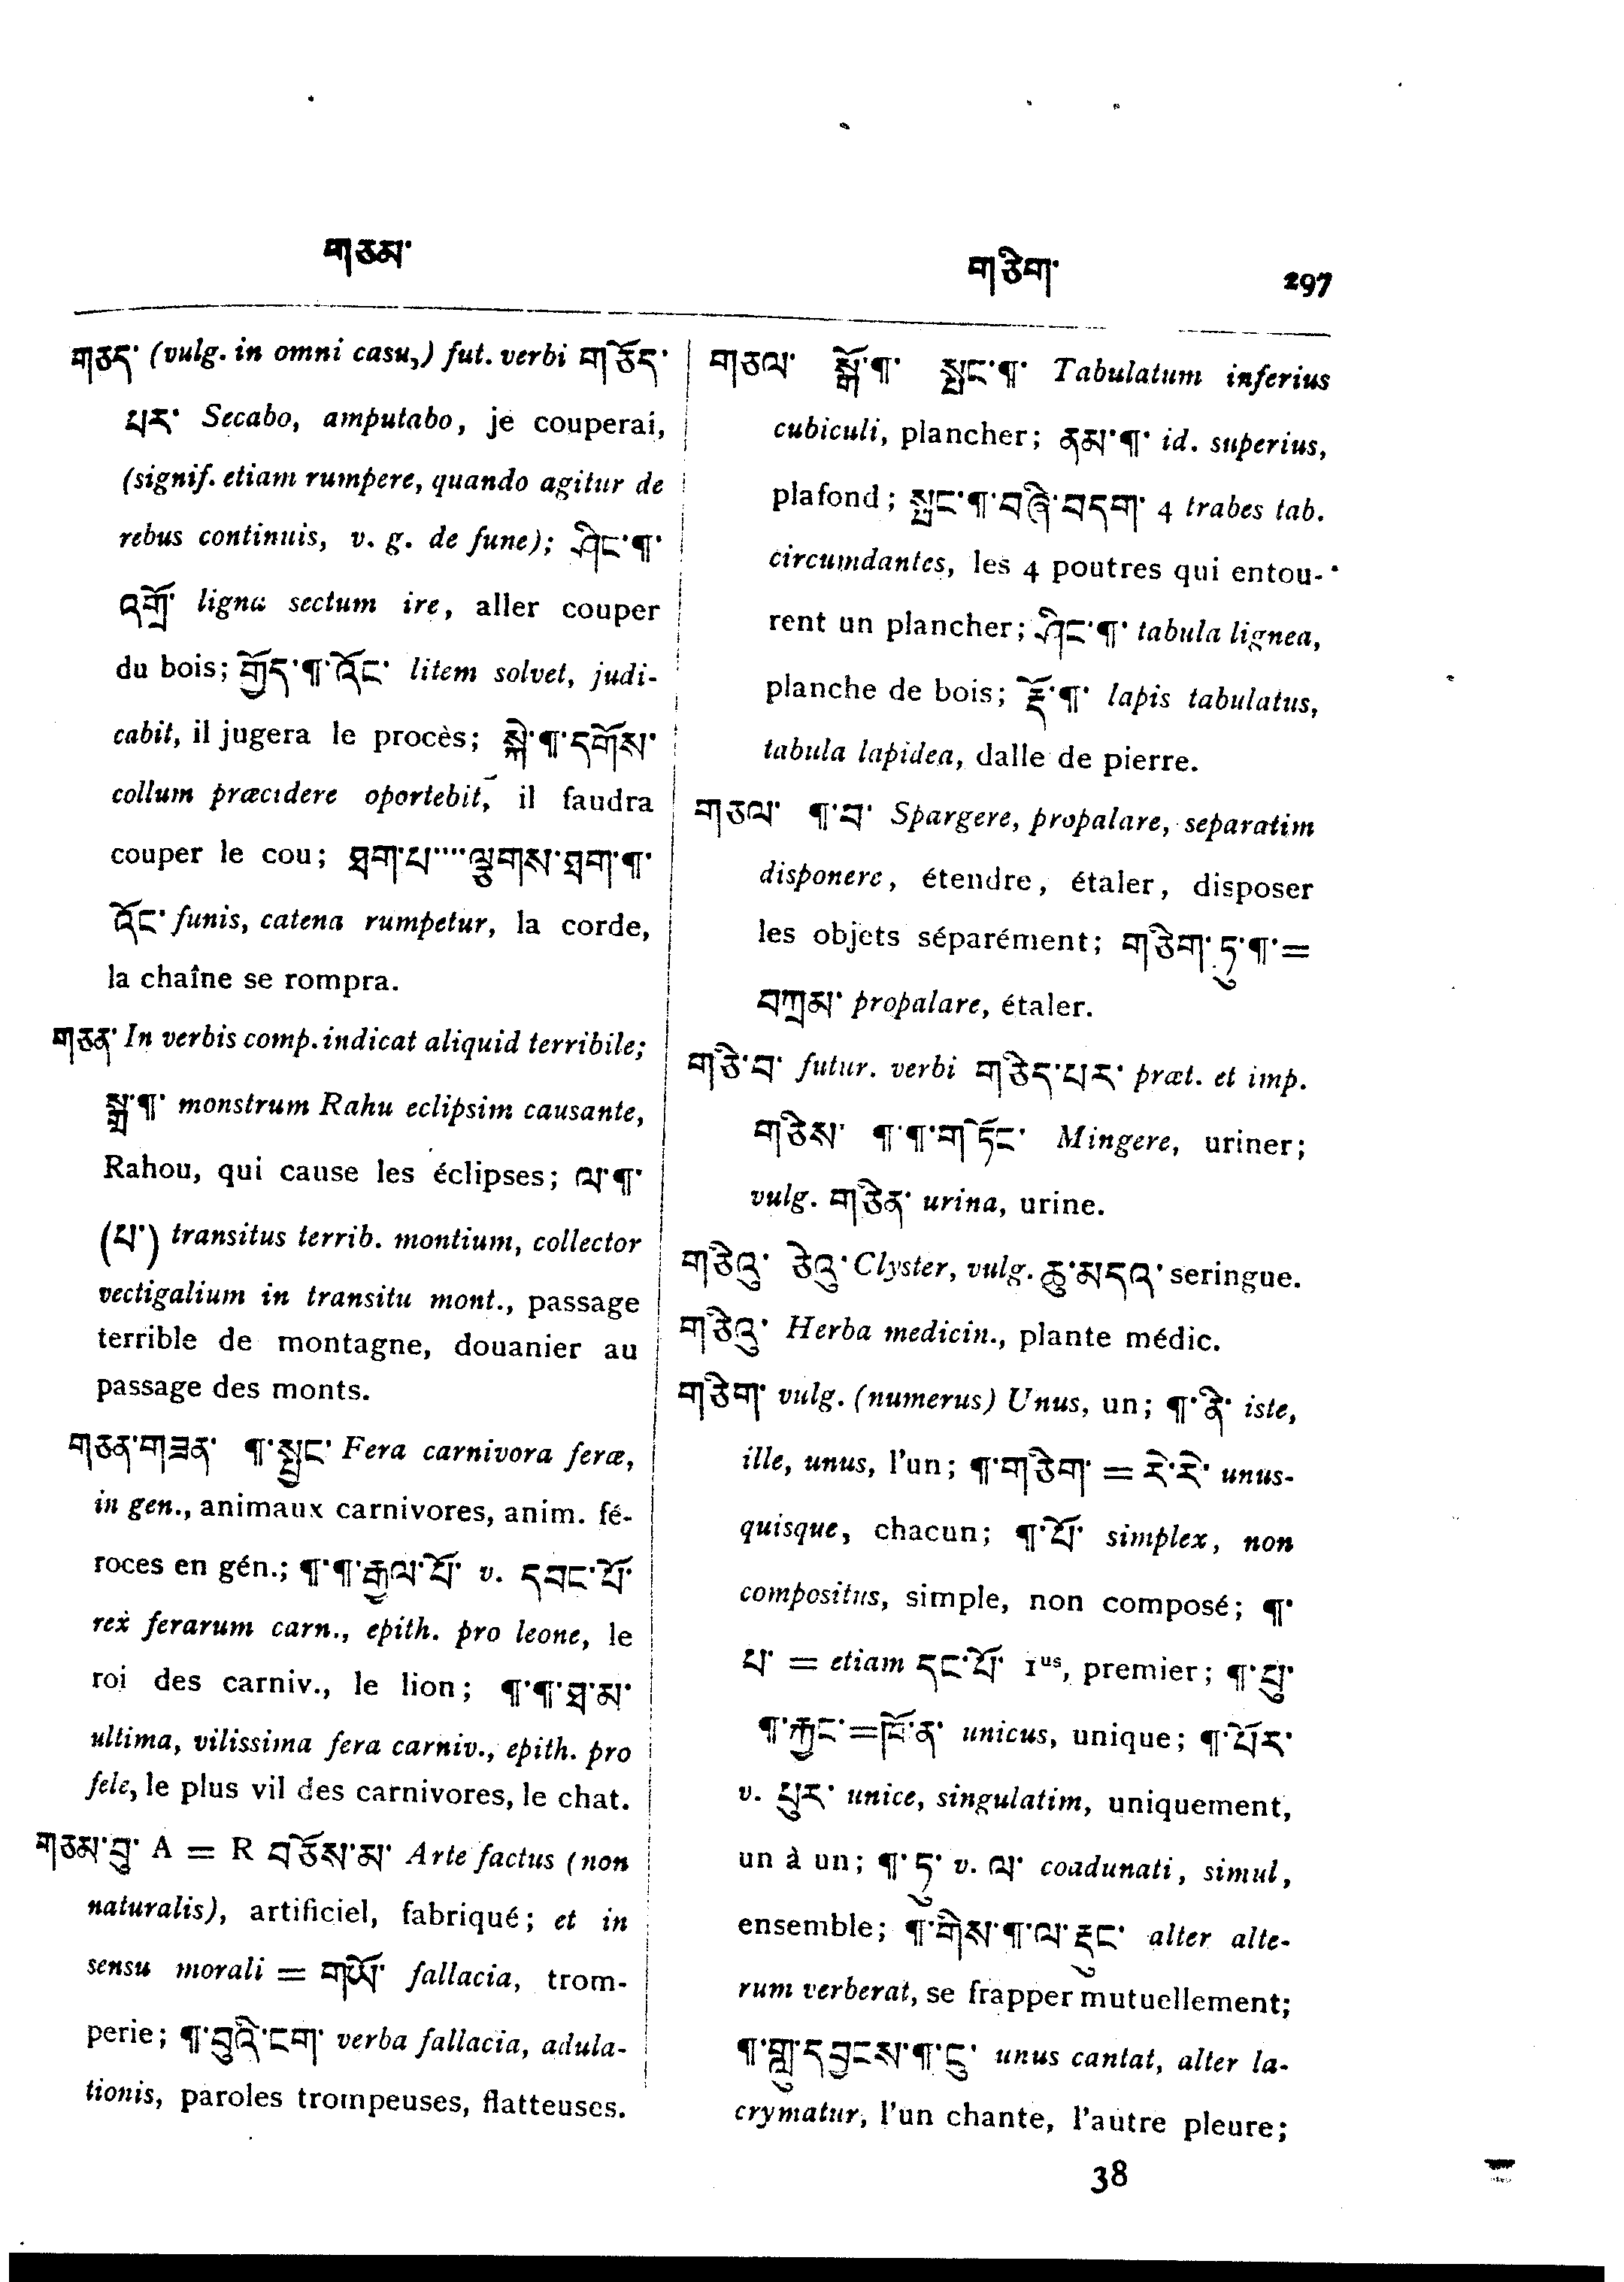 གཅམ་
གཅིག་ 297
གཅད་ (vulg. in omni casu,) fut. verbi གཅོད་
པར་ Secabo, amputabo, je couperai,
(signif. etiam rumpere, quando agitur de
rebus continuis, v. g. de fune); ཤིང་¶་
འགྲོ་ ligna sectum ire, aller couper
du bois; གྱོད་¶་འོང་ litem solvet, judi-
cabit, il jugera le procès; སྐེ་¶་དགོས་
collum præcidere oportebit, il faudra
couper le cou; ཐག་པ་....ལྕགས་ཐག་¶་
འོང་ funis, catena rumpetur, la corde,
la chaîne se rompra.
གཅན་ In verbis comp. indicat aliquid terribile;
སྒྲ་¶་ monstrum Rahu eclipsim causante,
Rahou, qui cause les éclipses; ལ་¶་
(པ་) transitus terrib. montium, collector
vectigalium in transitu mont., passage
terrible de montagne, douanier au
passage des monts.
གཅན་གཟན་ ¶་སྤྱང་ Fera carnivora feræ,
in gen., animaux carnivores, anim. fé-
roces en gén.; ¶་¶་རྒྱལ་པོ་ v. དབང་པོ་
rex ferarum carn., epith. pro leone, le
roi des carniv., le lion; ¶་¶་ཐ་མ་
ultima, vilissima fera carniv., epith. pro
fele, le plus vil des carnivores, le chat.
གཅམ་བུ་ A = R བཅོས་མ་ Arte factus (non
naturalis), artificiel, fabriqué; et in
sensu morali = གཡོ་ fallacia, trom-
perie; ¶་བུའི་ངག་ verba fallacia, adula-
tionis, paroles trompeuses, flatteuses.
གཅལ་ སྒྲོ་¶་ སྤང་¶་ Tabulatum inferius
cubiculi, plancher; ནམ་¶་ id. superius,
plafond; སྤང་¶་བཞི་བདག་ 4 trabes tab.
circumdantes, les 4 poutres qui entou-
rent un plancher; ཤིང་¶་ tabula lignea,
planche de bois; རྡོ་¶་ lapis tabulatus,
tabula lapidea, dalle de pierre.
གཅལ་ ¶་བ་ Spargere, propalare, separatim
disponere, étendre, étaler, disposer
les objets séparément; གཅིག་ཏུ་¶་=
བཀྲམ་ propalare, étaler.
གཅི་བ་ futur. verbi གཅིད་པར་ præt. et imp.
གཅིས་ ¶་¶་གཏོང་ Mingere, uriner;
vulg. གཅིན་ urina, urine.
གཅེའུ་ ཅེའུ་ Clyster, vulg. ཆུ་མདའ་ seringue.
གཅིའུ་ Herba medicin., plante médic.
གཅིག་ vulg. (numerus) Unus, un; ¶་ནི་ iste,
ille, unus, l'un; ¶་གཅིག་ = རེ་རེ་ unus-
quisque, chacun; ¶་པོ་ simplex, non
compositus, simple, non composé; ¶་
པ་ = etiam དང་པོ་ 1us, premier; ¶་པུ་
¶་རྐྱང་=ཁོ་ན་ unicus, unique; ¶་པོར་
v. པུར་ unice, singulatim, uniquement,
un à un; ¶་ཏུ་ v. ལ་ coadunati, simul,
ensemble; ¶་གིས་¶་ལ་རྡུང་ alter alte-
rum verberat, se frapper mutuellement;
¶་གླུ་དབྱངས་¶་ངུ་ unus cantat, alter la-
crymatur, l'un chante, l'autre pleure;
38